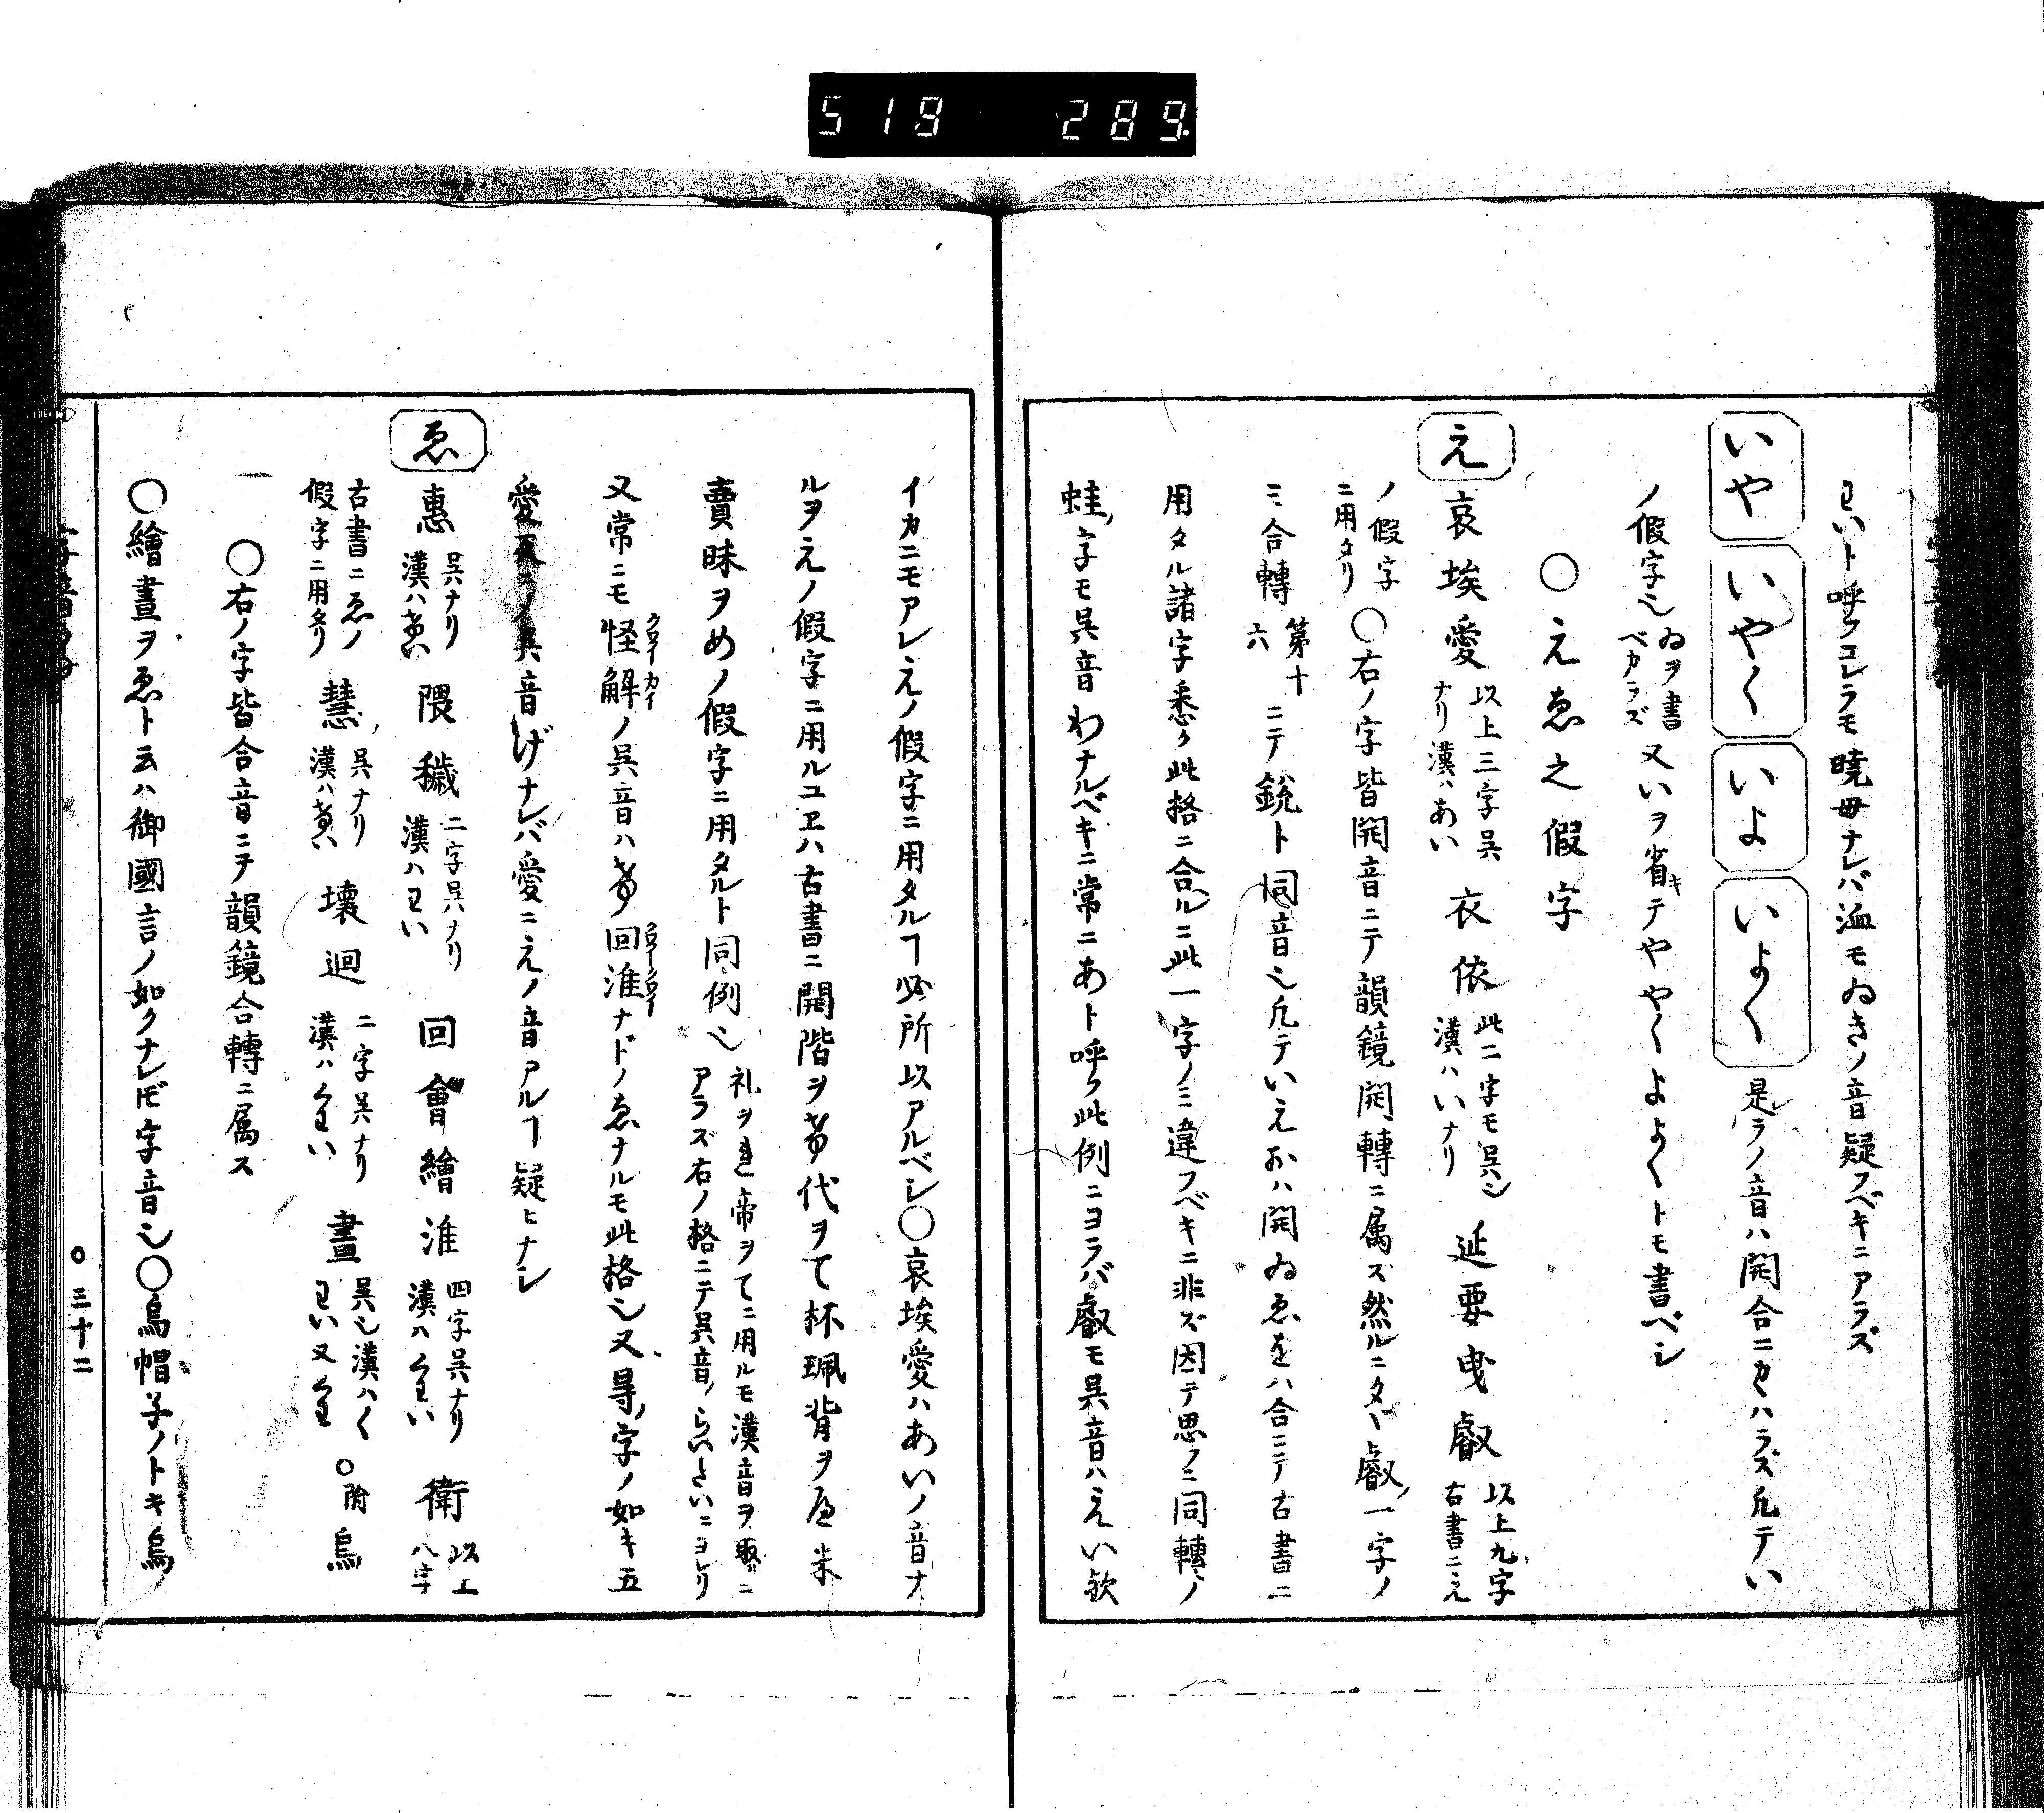 519 289
わいト呼クコレラモ曉母ナレバ溢モゐきノ音疑フベキニアラズ
いや いやく いよ いよく 是ラノ音ハ開合ニカヽハラズ凡テい
ノ假字也 ゐヲ書
ベカラズ 又いヲ省キテややくよよくトモ書ベシ
〇えゑ之假字
え 哀埃愛 以上三字呉
ナリ漢ハあい 衣依 此二字モ呉也
漢ハいナリ 延要曳叡 以上九字
古書ニえ
ノ假字
ニ用タリ 〇右ノ字皆開音ニテ韻鏡開轉ニ属ズ然ルニタヾ叡ノ一字ノ
ミ合轉 第十
六 ニテ銳ト同音也凡テいえおハ開ゐゑをハ合ニテ古書ニ
用タル諸字悉ク此格ニ合ルニ此一字ノミ違フベキニ非ズ因テ思フニ同轉ノ
蛙ノ字モ呉音わナルベキニ常ニあト呼ク此例ニヨラバ叡モ呉音ハえい欤
イカニモアレえノ假字ニ用タルヿ必所以アルベシ〇哀埃愛ハあいノ音ナ
ルヲえノ假字ニ用ルユヱハ古書ニ開階ヲけ代ヲて杯珮背ヲへ米
賣昧ヲめノ假字ニ用タルト同例也 礼ヲれ帝ヲてニ用ルモ漢音ヲ取ニ
アラズ右ノ格ニテ呉音ノらいたいニヨレリ
又常ニモ怪解ノ呉音ハけ回淮ナドノゑナルモ此格也又㝵ノ字ノ如キ五
愛反ニシテ呉音げナレバ愛ニえノ音アルヿ疑ヒナシ
ゑ 惠 呉ナリ
漢ハけい 隈穢 二字呉ナリ
漢ハわい 回會繪淮 四字呉ナリ
漢ハくわい 衛 以上
八字
古書ニゑノ
假字ニ用タリ 慧 呉ナリ
漢ハけい 壞迴 二字呉ナリ
漢ハくわい 畫 呉也漢ハく
わい又くわ 〇附 烏
〇右ノ字皆合音ニテ韻鏡合轉ニ属ス
〇繪畫ヲゑト云ハ御國言ノ如クナレドモ字音也〇烏帽子ノトキ烏
〇三十二